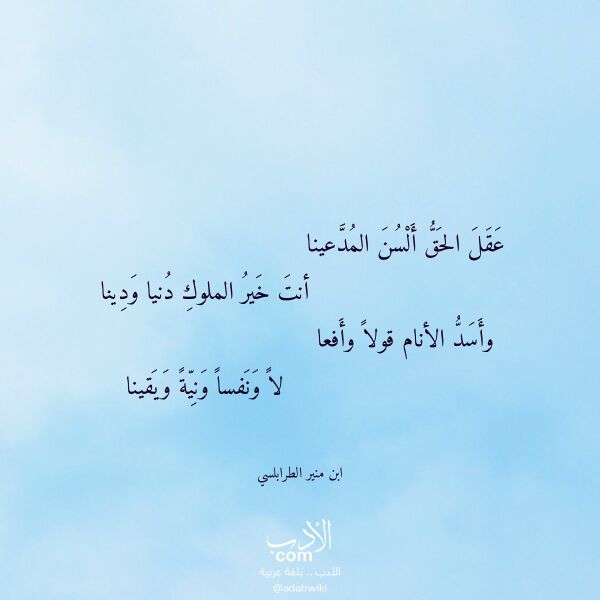 عَقَلَ الحَقُّ أَلْسُنَ المُدَّعينا
أنتَ خَيرُ الملوكِ دُنيا وَدِينا
وأَسَدُّ الأنام قولاً وأَفعا
لاً وَنَفساً وَنِيّةً وَيَقينا
ابن منير الطرابلسي
الأدب
com
الأدب .. بلغة عربية
@adabwiki